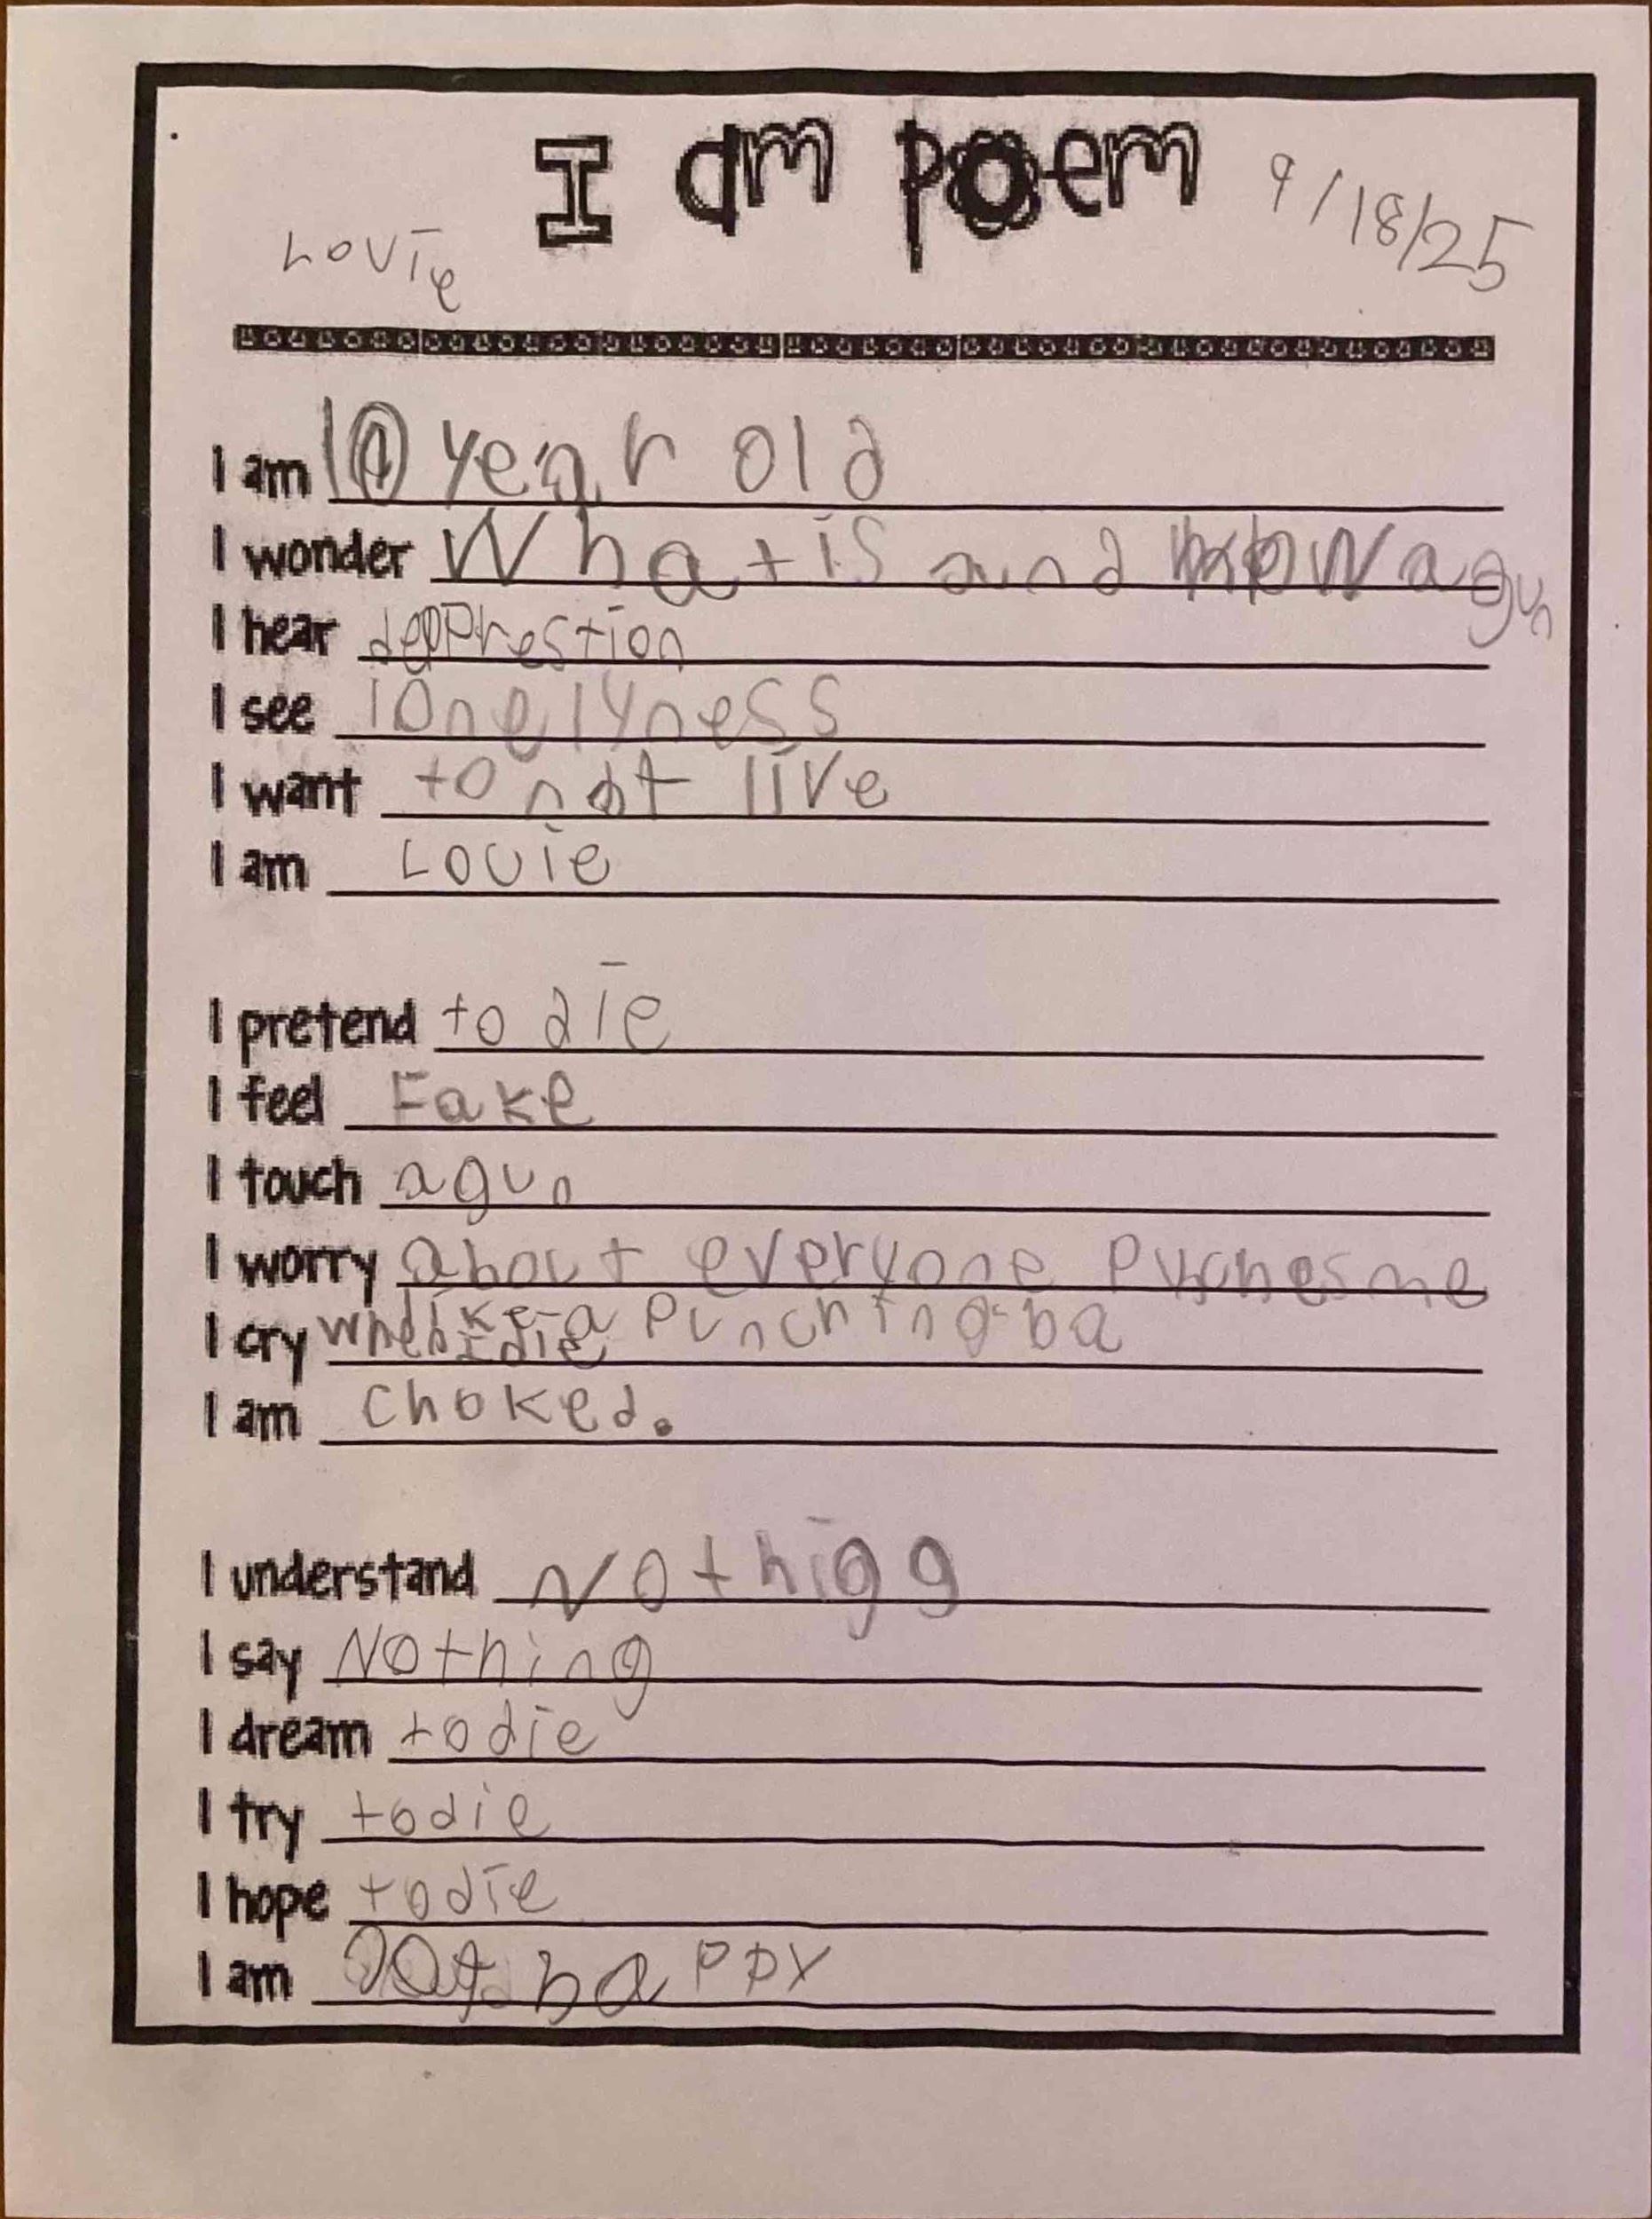 I am poem
9/18/25
Louie
I am 10 year old
I wonder What is and how a gun
I hear deprestion
I see lonelyness
I want to not live
I am Louie
I pretend to die
I feel Fake
I touch a gun
I worry about everyone Puches me
like a Punching ba
I cry when I die
I am choked.
I understand Nothigg
I say Nothing
I dream to die
I try to die
I hope to die
I am not happy